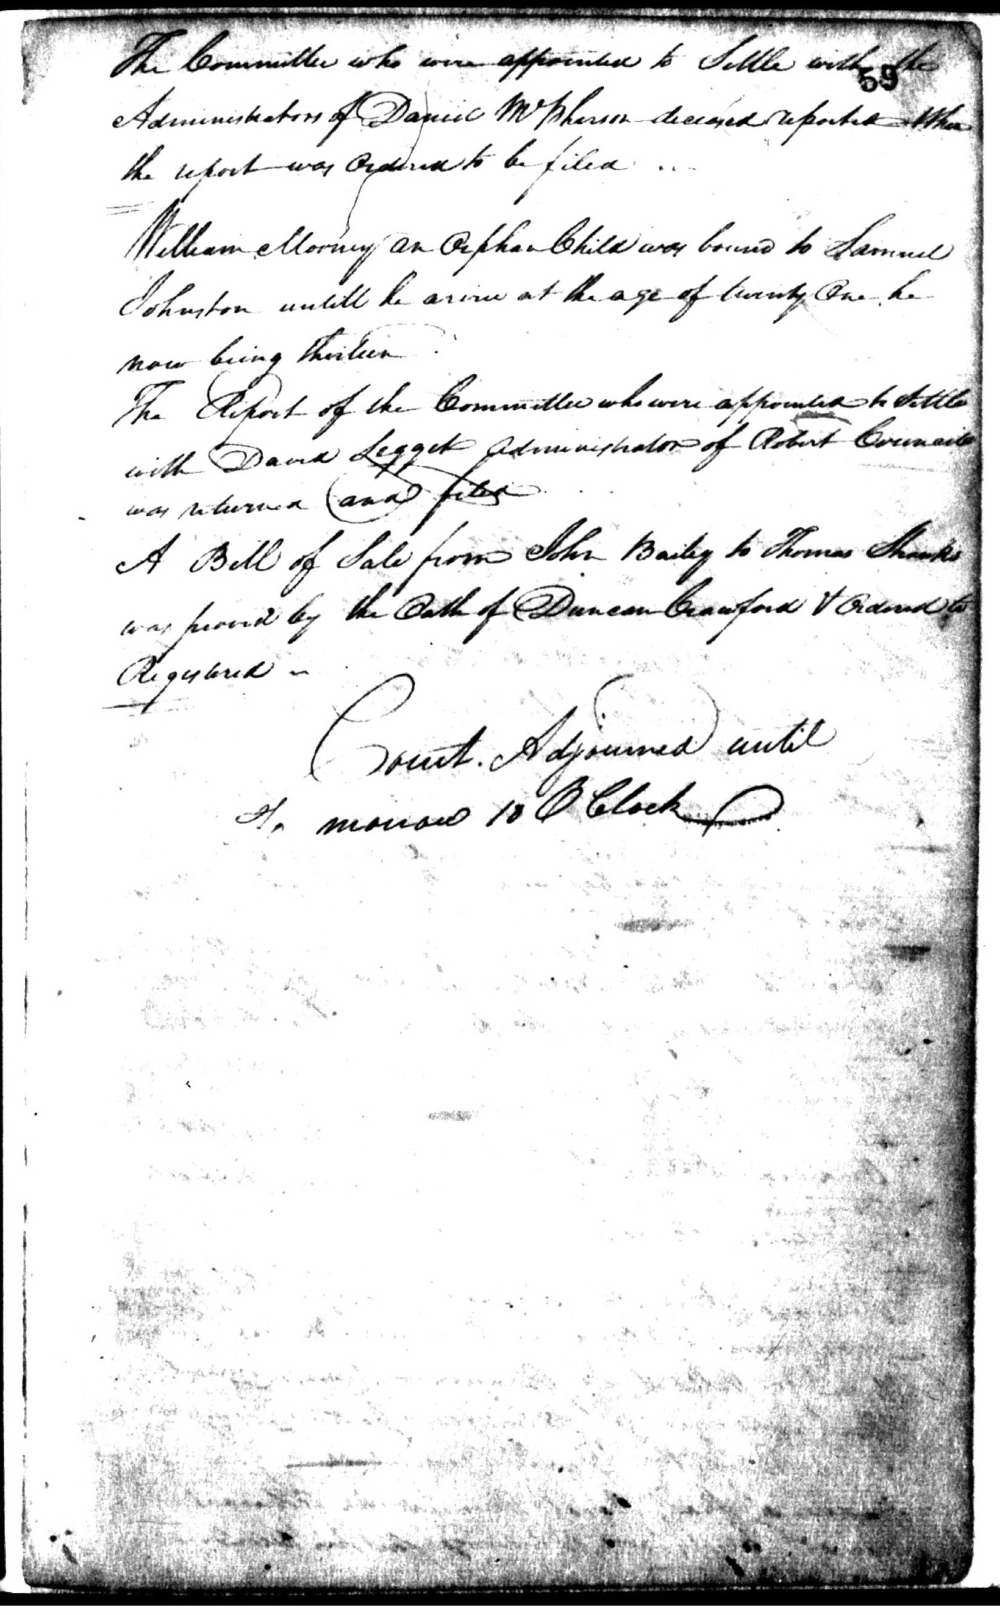 The Committee who were appointed to Settle with the
59
Administrators of Daniel McPherson deceased reported When
the report was Ordered to be filed
William Mooney an Orphan Child was bound to Samuel
Johnston untill he arive at the age of twenty One he
now being thirteen
The Report of the Committee who were appointed to Settle
with David Legget Administrator of Robert Council
was returned and filed
A Bill of Sale from John Bailey to Thomas Shanks
was proved by the Oath of Duncan Crawford & Ordered to
Registered
Court Adjourned until
To morrow 10 O Clock